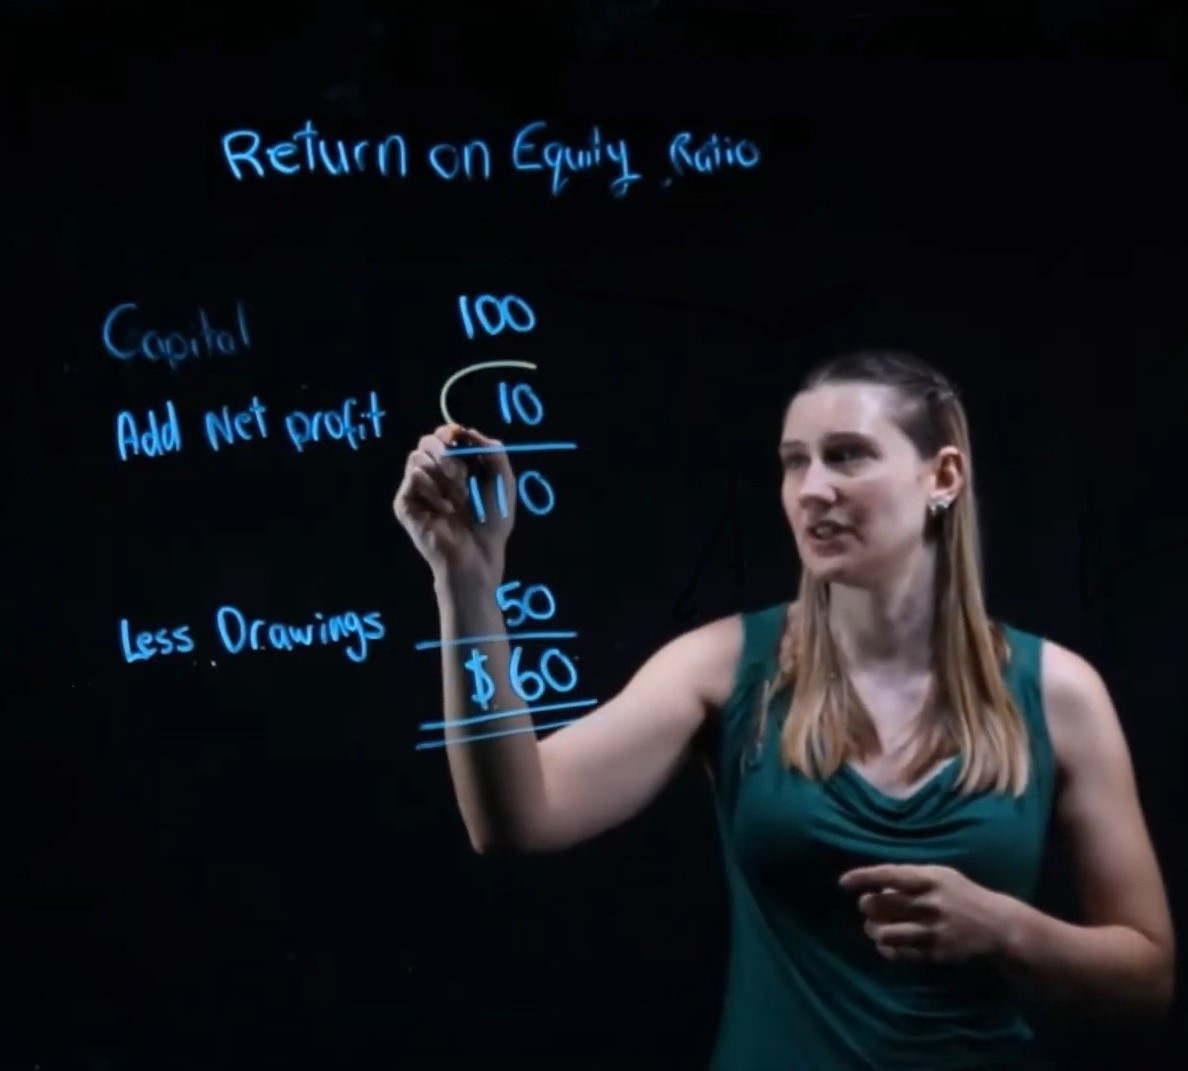 Return on Equity Ratio
Capital 100
Add Net profit 10
110
Less Drawings 50
$ 60